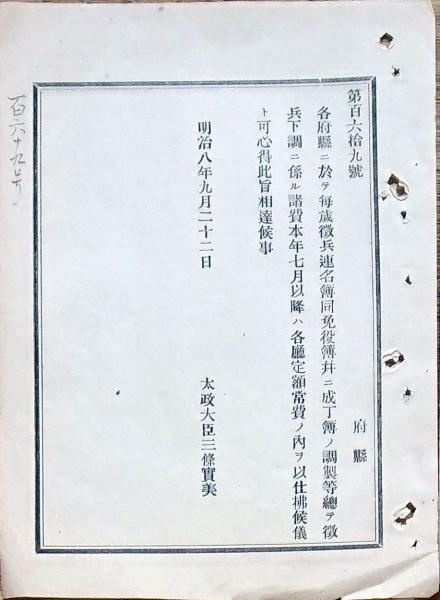 第百六拾九號
府縣
各府縣ニ於テ每歲徵兵連名簿同免役簿幷ニ成丁簿ノ調製等總テ徵
兵下調ニ係ル諸費本年七月以降ハ各廳定額常費ノ內ヲ以仕拂候儀
ト可心得此旨相達候事
明治八年九月二十二日
太政大臣三條實美
百六十九号